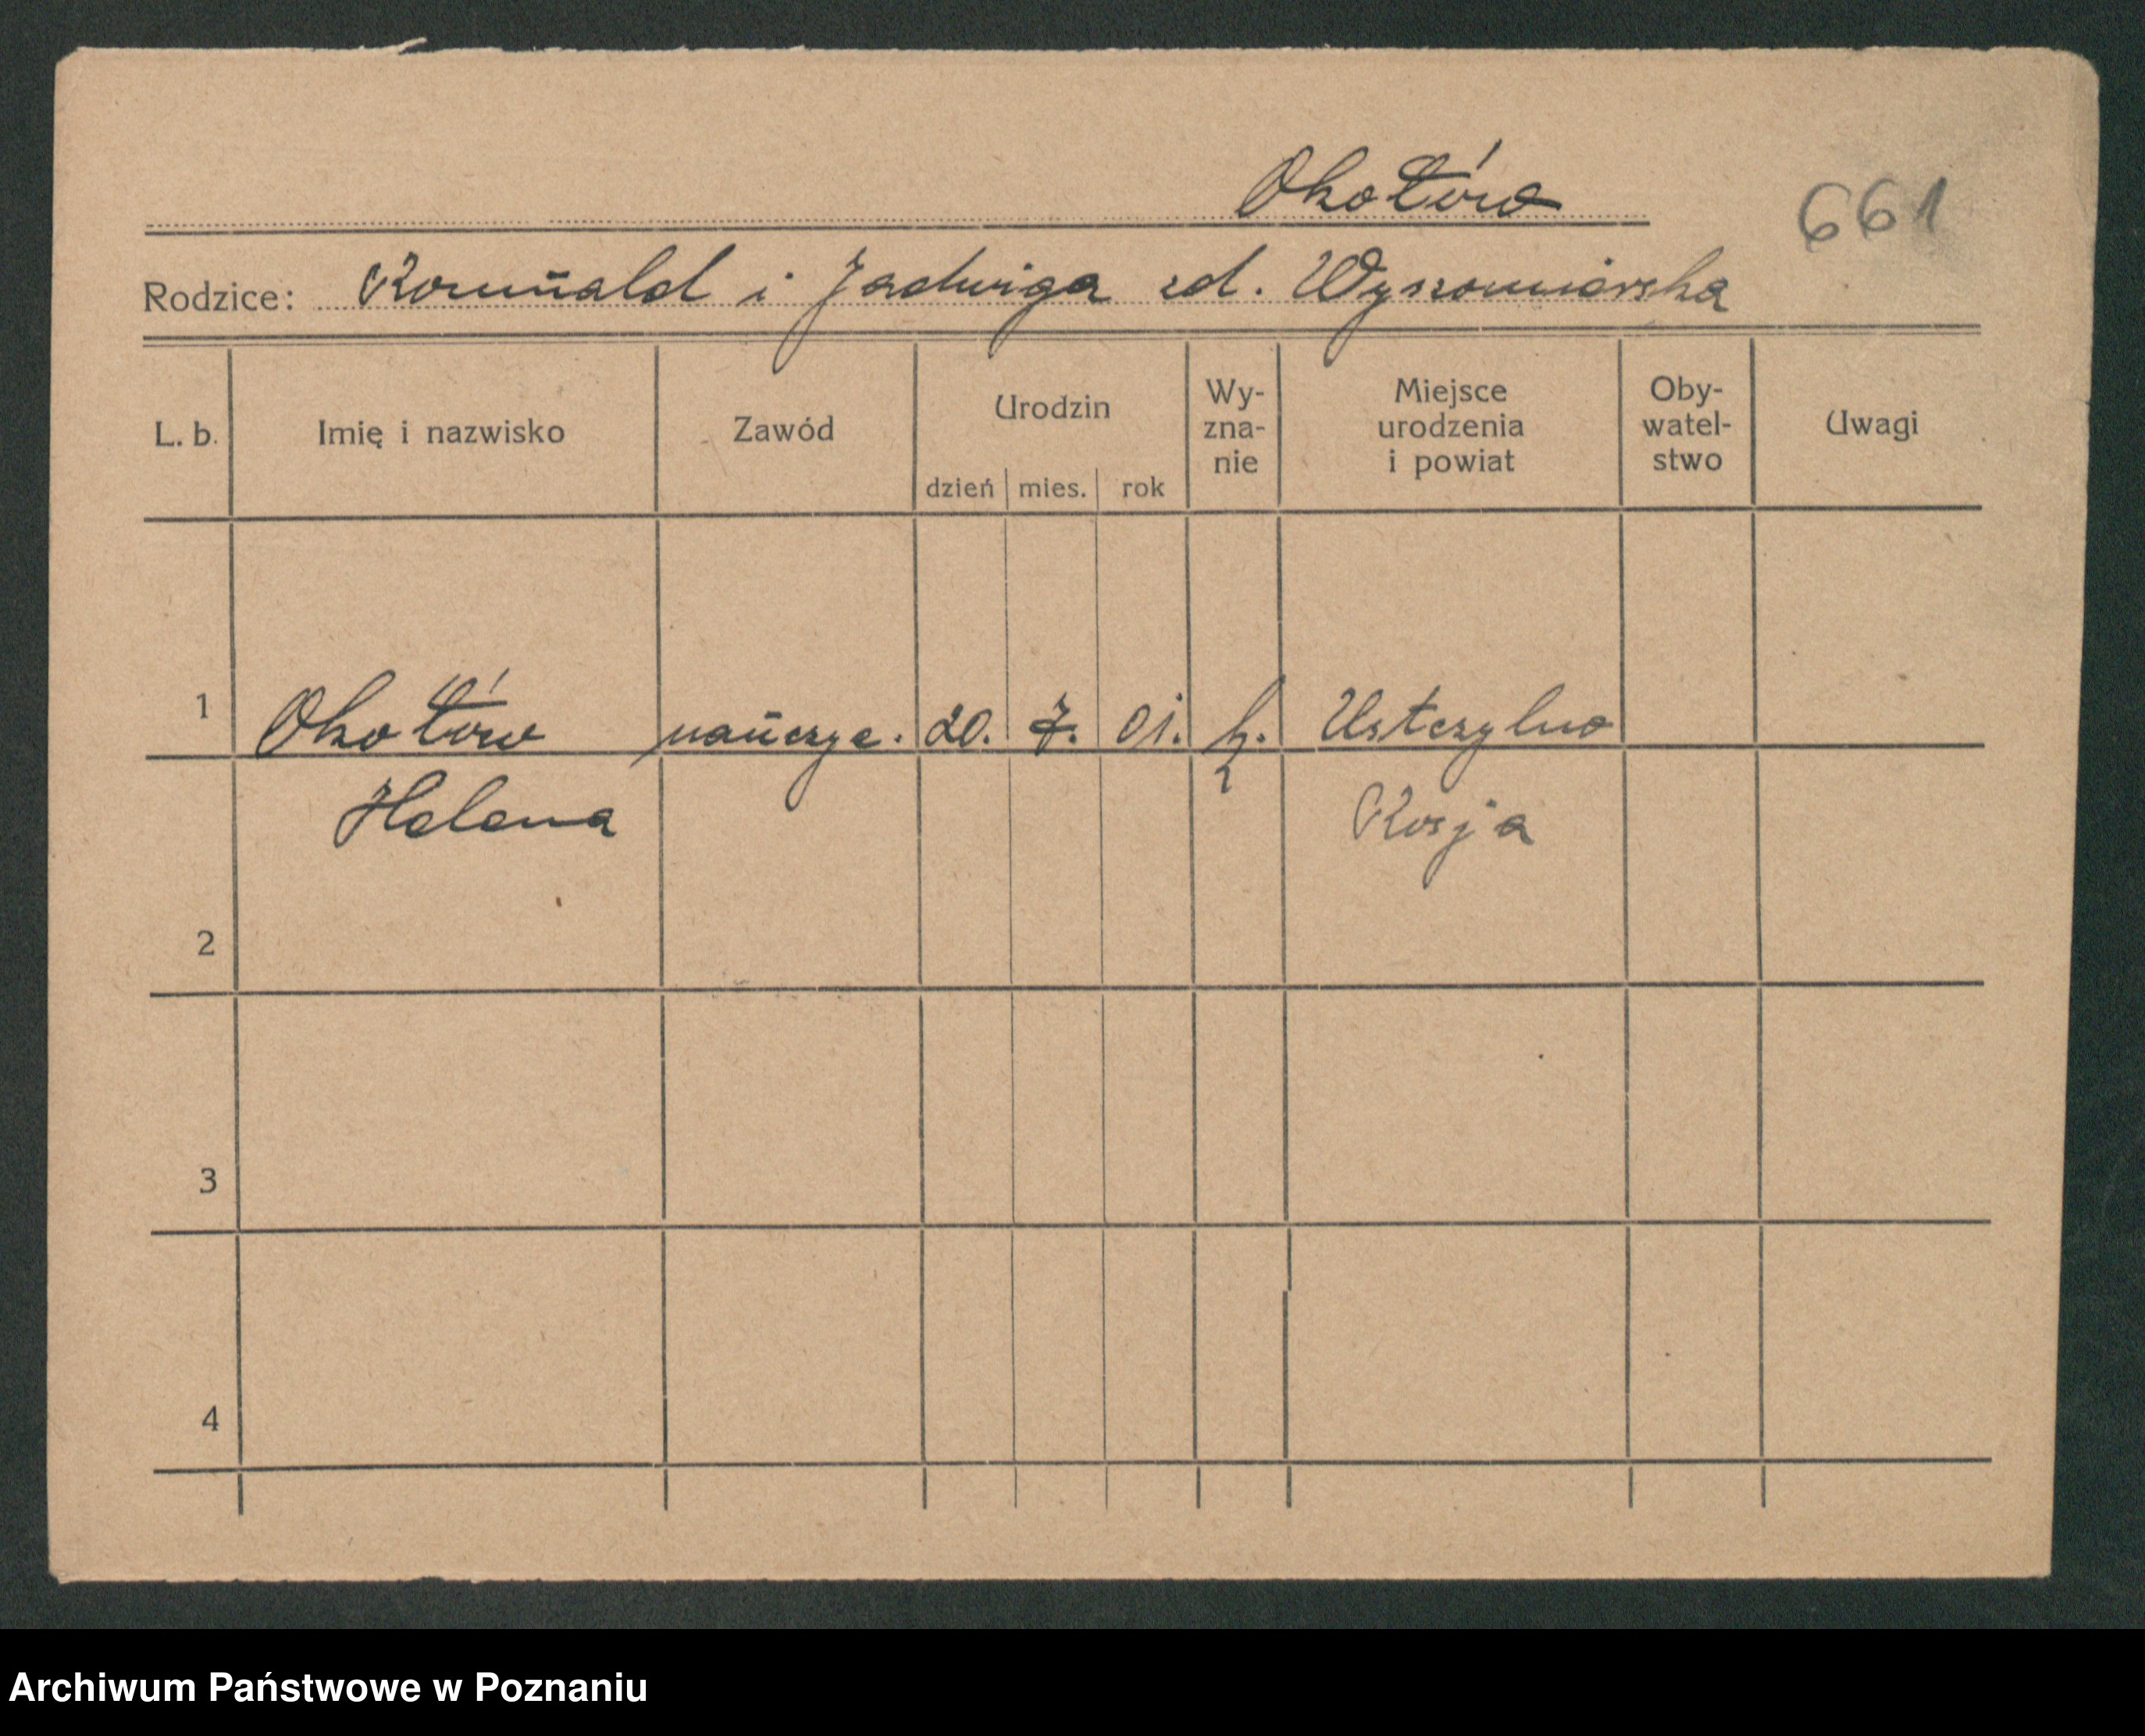 Okołów
661
Rodzice: Romuald i Jadwiga zd. Wyszomirska
L. b. Imię i nazwisko Zawód Urodzin dzień mies. rok Wy-zna-nie Miejsce urodzenia i powiat Oby-watel-stwo Uwagi
1 Okołów nauczyc. 20. 7. 01. k. Ustczylno
Helena Rosja
2
3
4
Archiwum Państwowe w Poznaniu